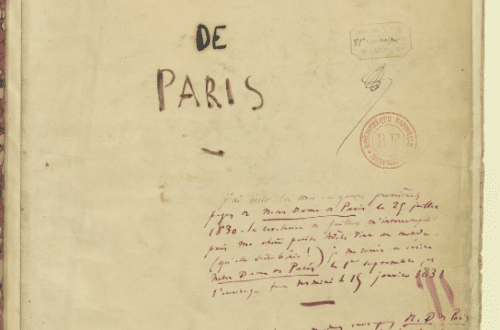 DE
PARIS
BIBLIOTHÈQUE NATIONALE
B.F.
J'ai écrit les trois ou quatre premières
pages de Notre-Dame de Paris le 25 juillet
1830. la révolution de juillet m'interrompit
puis ma chère petite Adèle vint au monde
(qu'elle soit bénie!) je me remis à écrire
Notre-Dame de Paris le 1er septembre, et
l'ouvrage fut terminé le 15 janvier 1831
N. D. de Paris